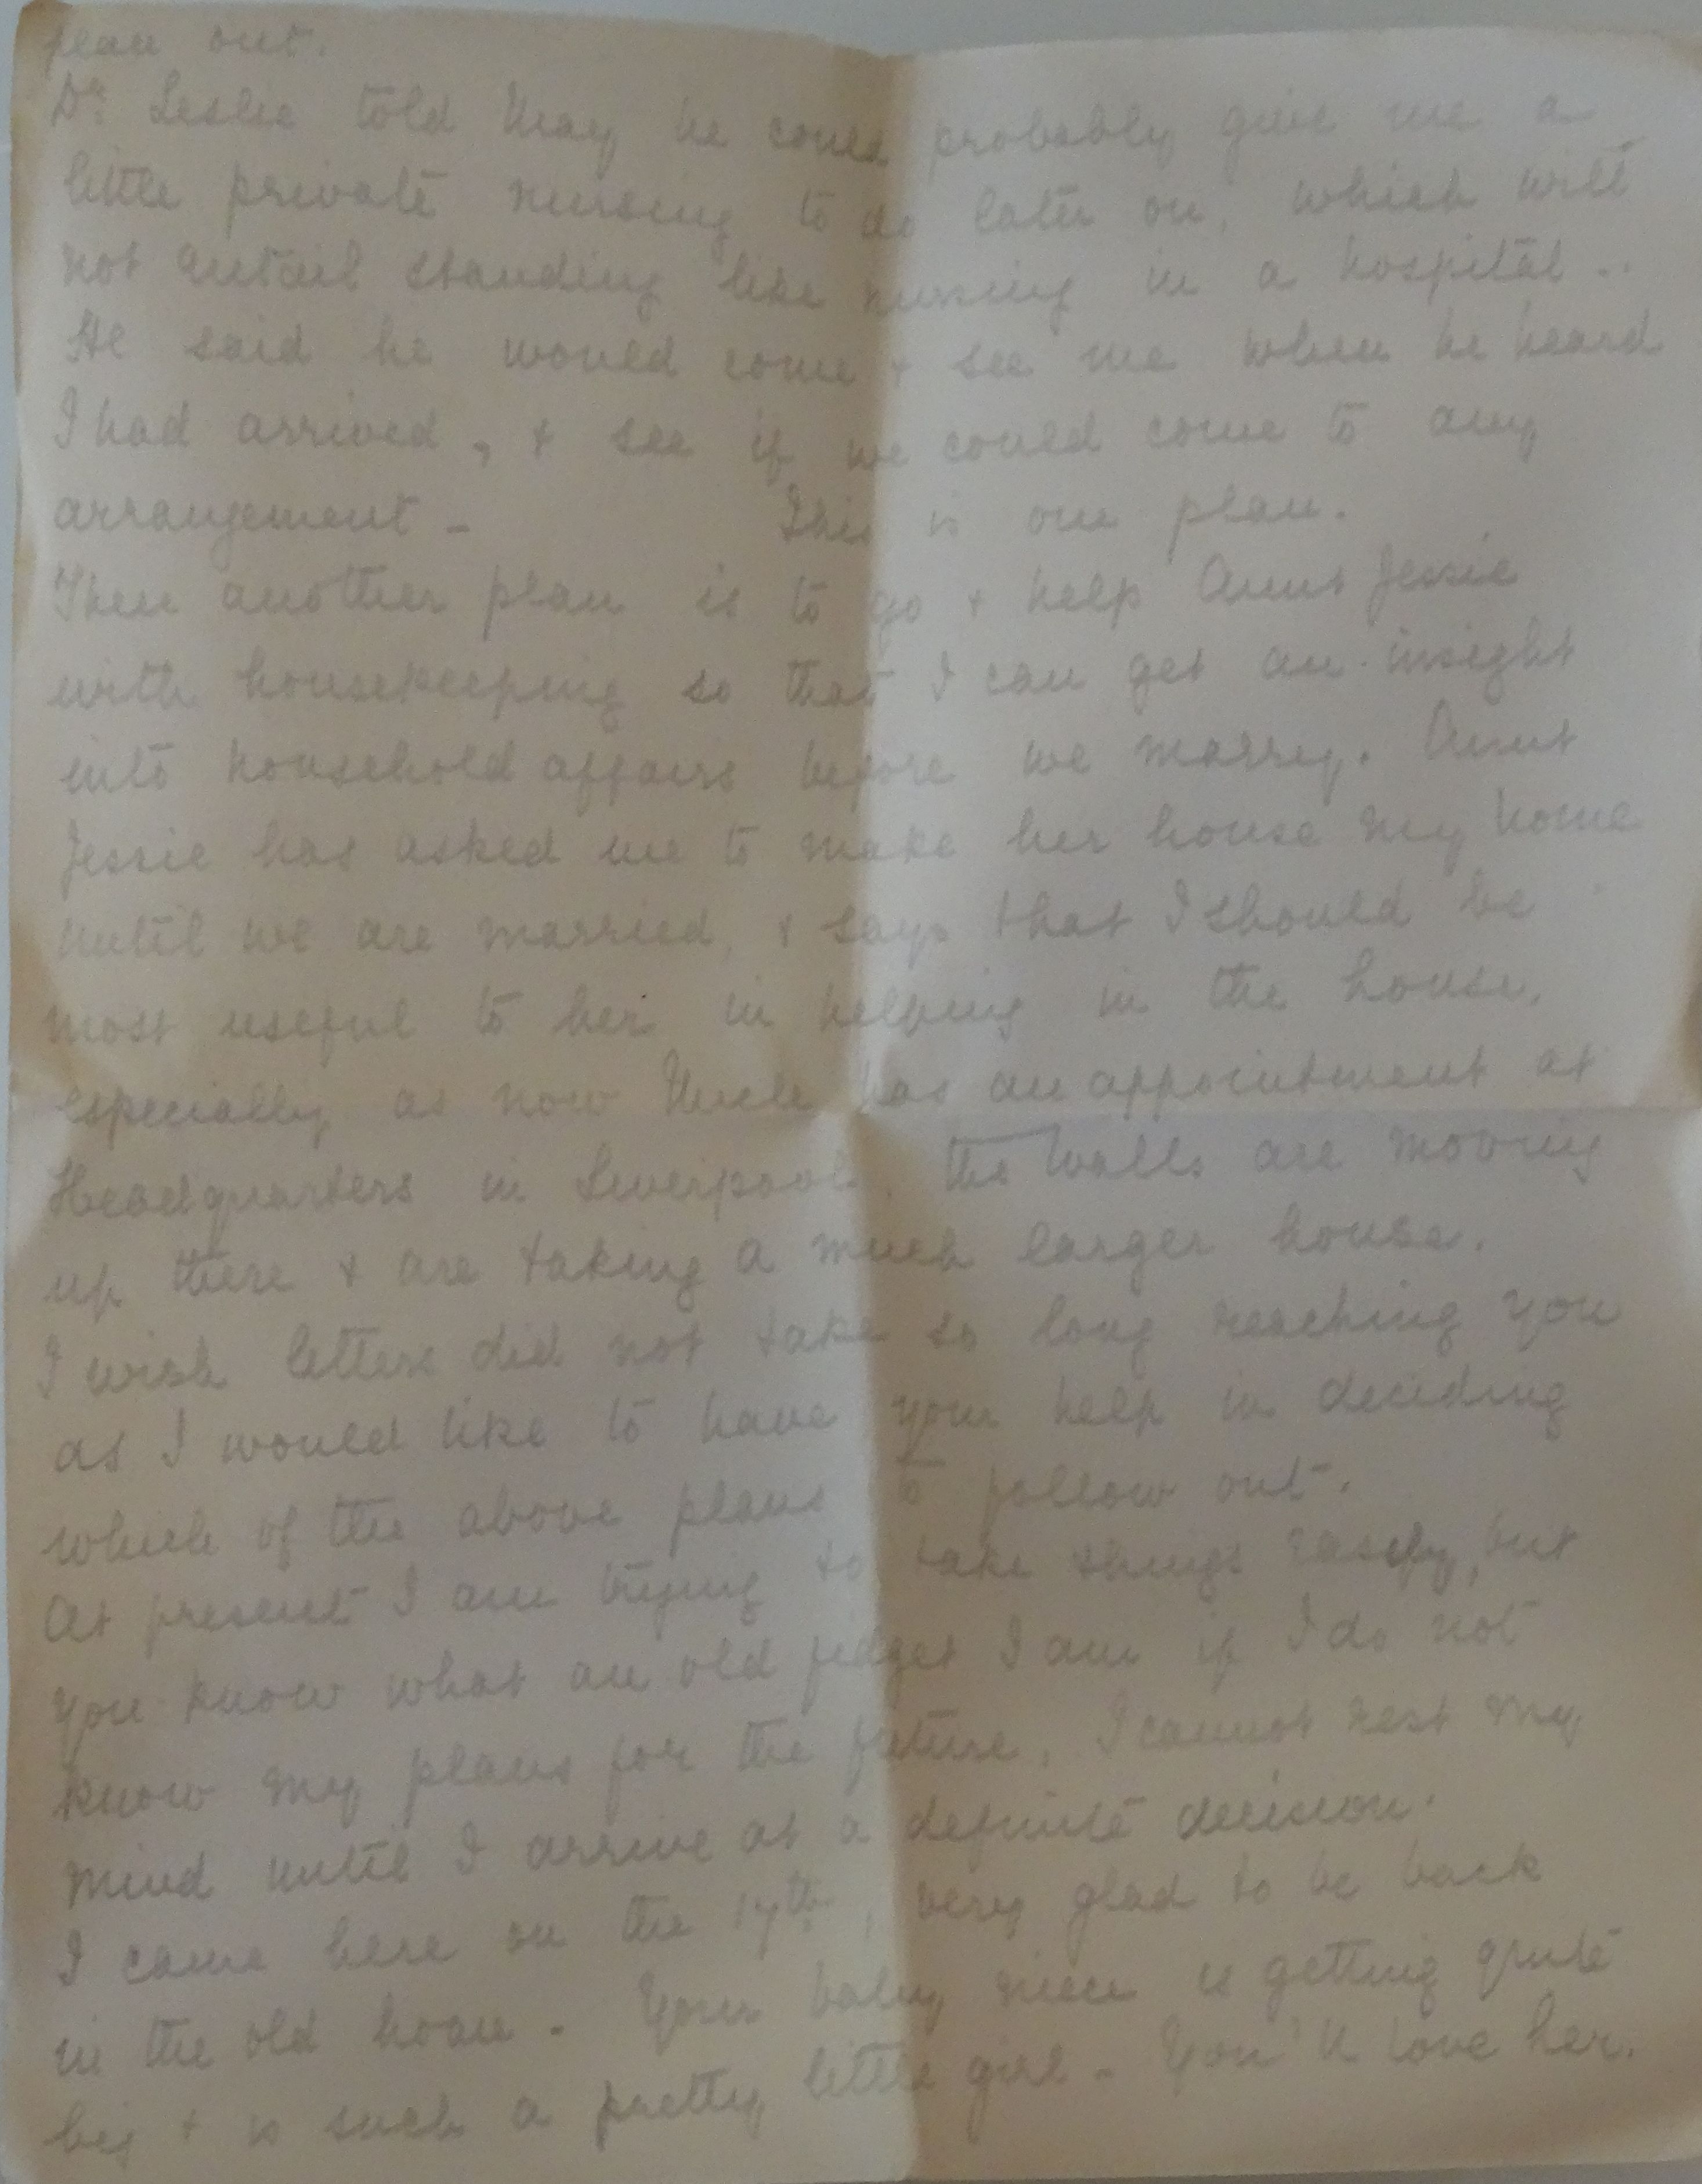 plan out.
Dr. Leslie told May he could probably give me a
little private nursing to do later on, which will
not entail standing like nursing in a hospital..
He said he would come + see me when he heard
I had arrived, + see if we could come to any
arrangement - This is one plan.
Then another plan is to go + help Aunt Jessie
with housekeeping so that I can get an insight
into household affairs before we marry. Aunt
Jessie has asked me to make her house my home
until we are married, + says that I should be
most useful to her in helping in the house,
especially as now Uncle has an appointment at
Headquarters in Liverpool, the Walls are moving
up there + are taking a much larger house.
I wish letters did not take so long reaching you
as I would like to have your help in deciding
which of the above plans to follow out.
At present I am trying to take things easily, but
you know what an old fidget I am if I do not
know my plans for the future, I cannot rest my
mind until I arrive at a definite decision.
I came here on the 17th, very glad to be back
in the old home - Your baby niece is getting quite
big + is such a pretty little girl - You'll love her.